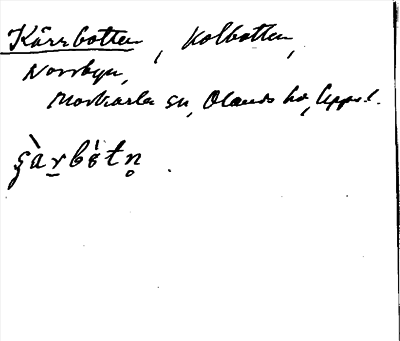 Kärrbotten, Kolbotten,
Norrbyn,
Morkarla sn, Olands hd, Upps. l.